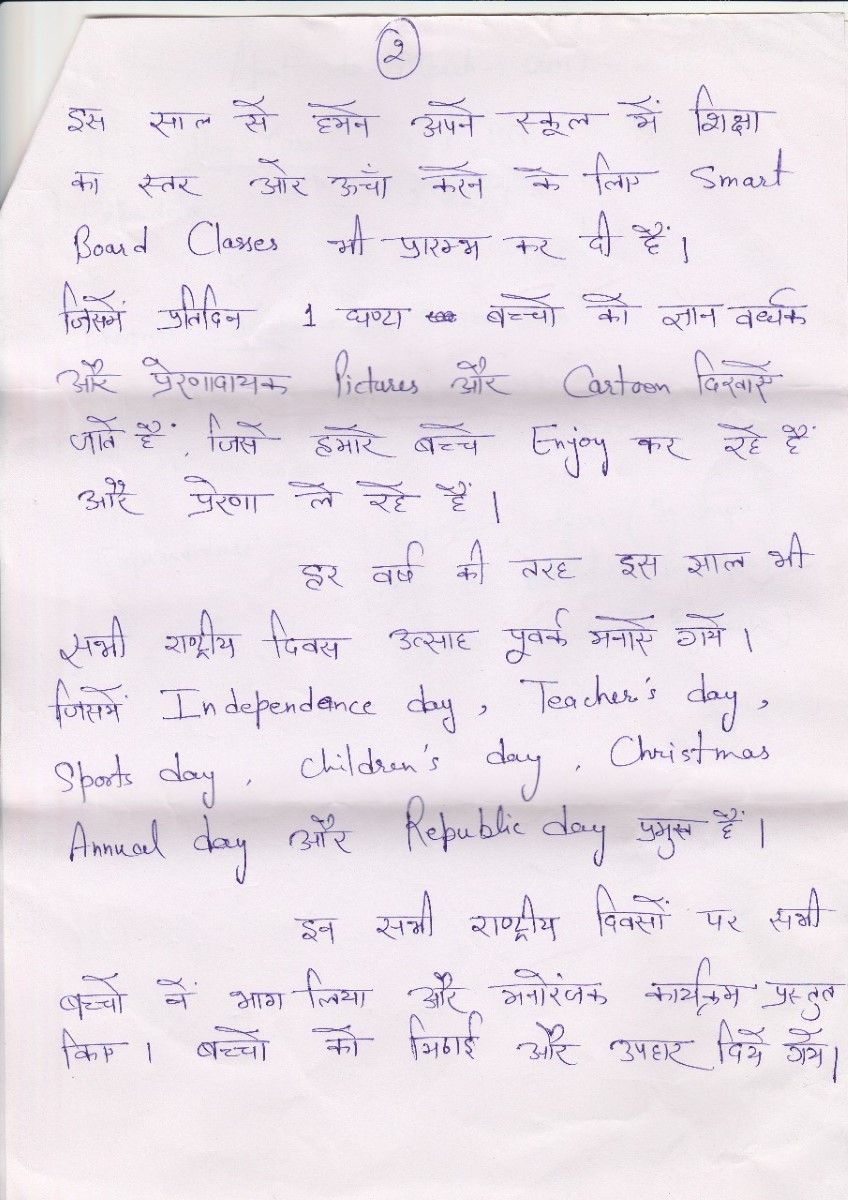 २
इस साल से हमने अपने स्कूल में शिक्षा
का स्तर और ऊचाँ करने के लिए Smart
Board Classes भी प्रारम्भ कर दी हैं।
जिसमें प्रतिदिन 1 घण्टा बच्चो को ज्ञान वर्ध्यक
और प्रेरणादायक Pictures और Cartoon दिखाऐं
जाते हैं, जिसे हमारे बच्चे Enjoy कर रहे हैं
और प्रेरणा ले रहे हैं।
हर वर्ष की तरह इस साल भी
सभी राष्ट्रीय दिवस उत्साह पूवर्क मनाऐ गये।
जिसमें Independence day, Teacher's day,
Sports day, Children's day, Christmas
Annual day और Republic day प्रमुख हैं।
इन सभी राष्ट्रीय दिवसों पर सभी
बच्चो नें भाग लिया और मनोरंजक कार्यक्रम प्रस्तुत
किए। बच्चो को मिठाई और उपहार दिये गये।